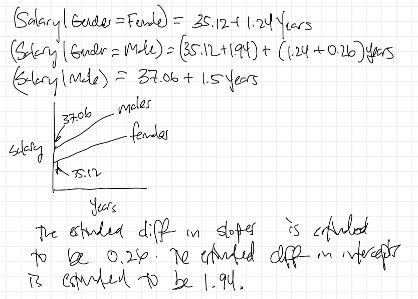 (Salary | Gender = Female) = 35.12 + 1.24 Years
(Salary | Gender = Male) = (35.12 + 1.94) + (1.24 + 0.26) Years
(Salary | Male) = 37.06 + 1.5 Years
37.06
males
females
Salary
35.12
Years
The estimated diff in slopes is estimated
to be 0.26. The estimated diff in intercepts
is estimated to be 1.94.